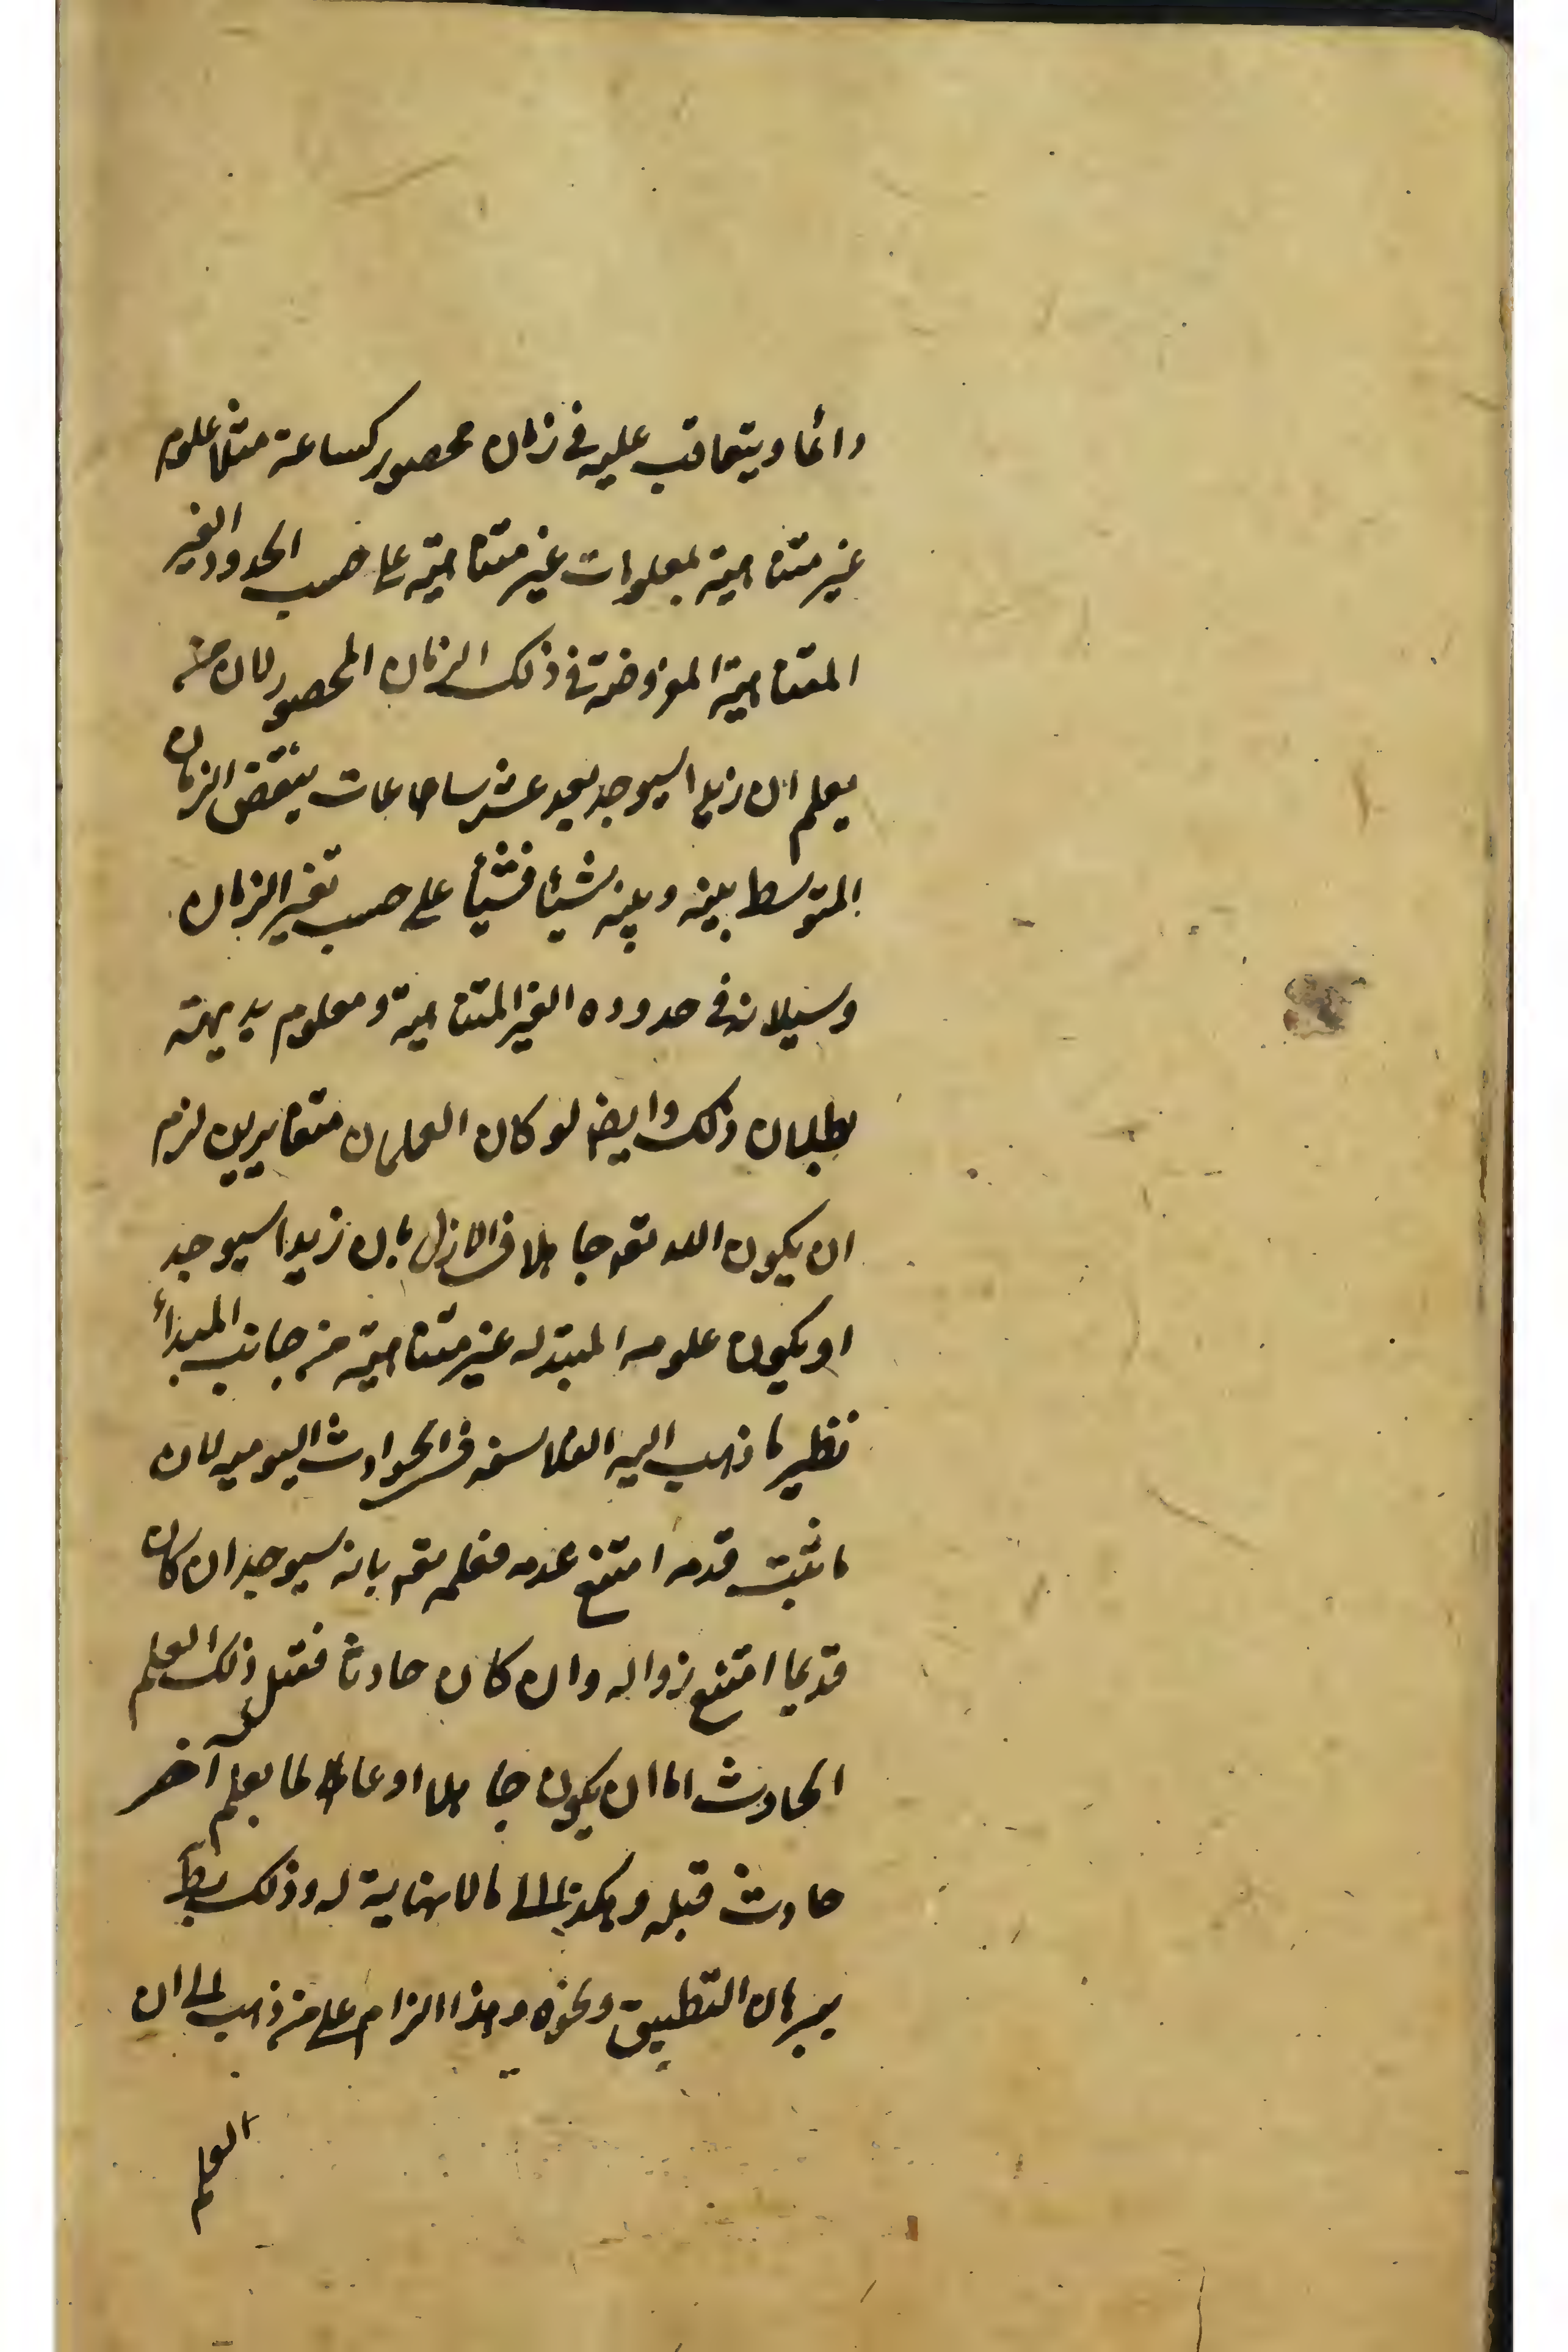 دائما ويتعاقب عليه في زمان محصور كساعة مثلا علوم
غير متناهية بمعلومات غير متناهية على حسب الحدود الغير
المتناهية المفروضة في ذلك الزمان المحصور لان من
يعلم ان زيدا سيوجد بعد عشر ساعات ينقض الزمان
المتوسط بينه وبينه شيئا فشيأ على حسب تغير الزمان
وسيلانه في حدوده الغير المتناهية ومعلوم بديهة
بطلان ذلك وايض لو كان العلمان متغايرين لزم
ان يكون الله تعه جاهلا في الازل بان زيدا سيوجد
او يكون علومه المبتدله غير متناهية من جانب المبدأ
نظير ما ذهب اليه الفلاسفه في الحوادث اليوميه لان
ما ثبت قدمه امتنع عدمه فعلمه تعه بانه سيوجد ان كان
قديما امتنع زواله وان كان حادثا فقبل ذلك العلم
الحادث اما ان يكون جاهلا او عالما بعلم آخر
حادث قبله وهكذا الى ما لا نهاية له وذلك بط
ببرهان التطبيق ونحوه وهذا الزام على من ذهب الى ان
العلم